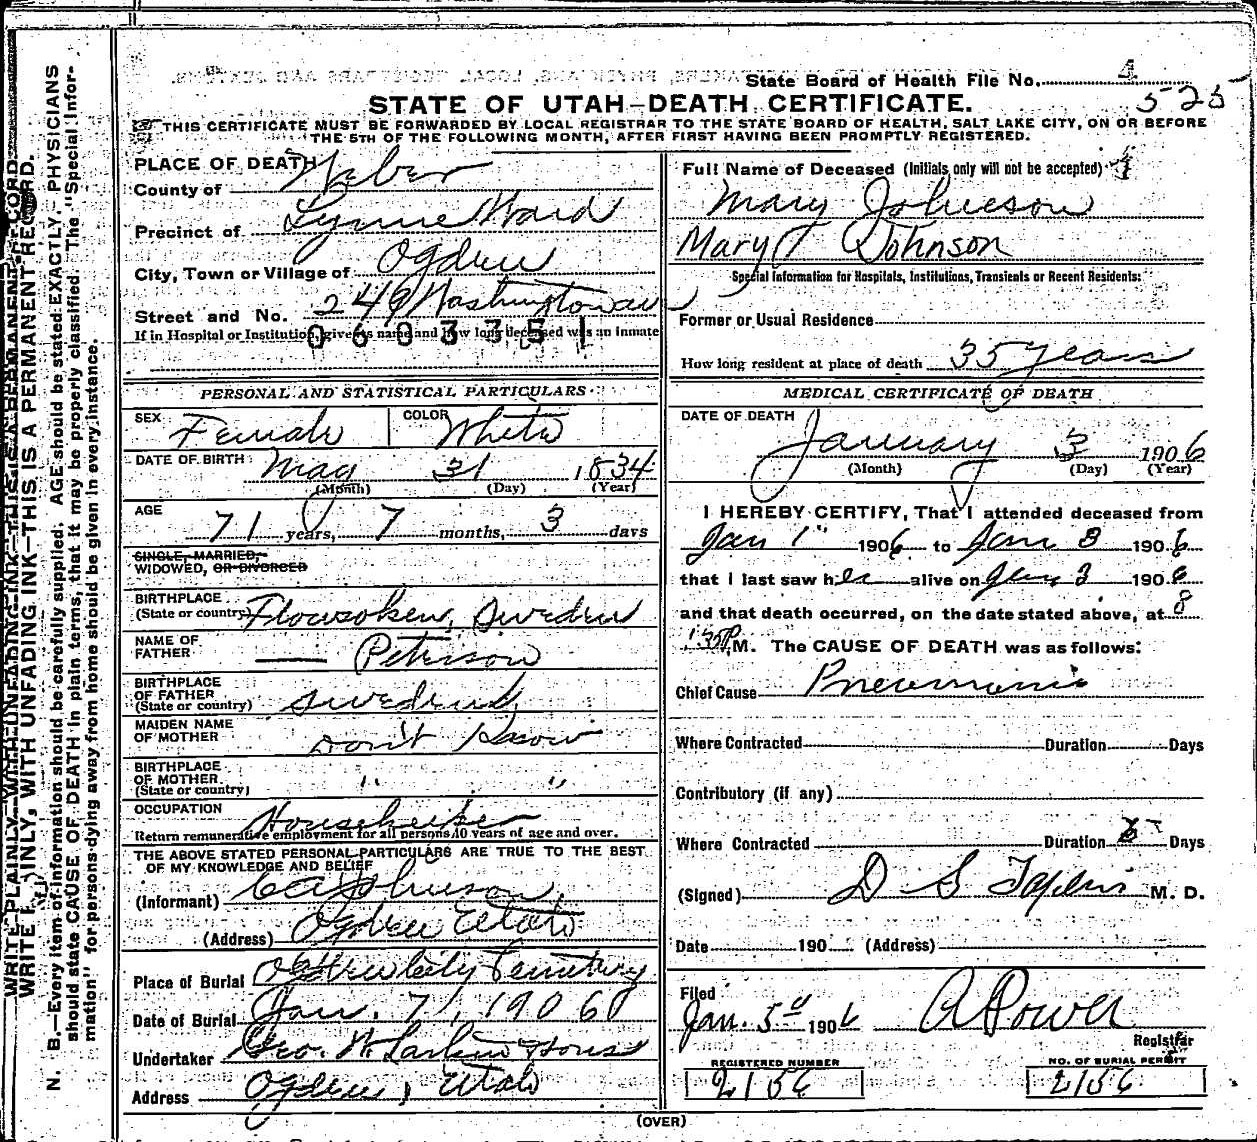 State Board of Health File No. 4
525
STATE OF UTAH—DEATH CERTIFICATE.
THIS CERTIFICATE MUST BE FORWARDED BY LOCAL REGISTRAR TO THE STATE BOARD OF HEALTH, SALT LAKE CITY, ON OR BEFORE
THE 5TH OF THE FOLLOWING MONTH, AFTER FIRST HAVING BEEN PROMPTLY REGISTERED.
WRITE PLAINLY, WITH UNFADING INK—THIS IS A PERMANENT RECORD.
N. B.—Every item of information should be carefully supplied. AGE should be stated EXACTLY. PHYSICIANS
should state CAUSE OF DEATH in plain terms, that it may be properly classified. The "Special Infor-
mation" for persons dying away from home should be given in every instance.
PLACE OF DEATH
County of Weber
Precinct of Lynne Ward
City, Town or Village of Ogden
Street and No. 249 Washington av
If in Hospital or Institution, give its name and how long deceased was an inmate
0603351
PERSONAL AND STATISTICAL PARTICULARS
SEX Female COLOR White
DATE OF BIRTH May 31 1834
(Month) (Day) (Year)
AGE
71 years, 7 months, 3 days
SINGLE, MARRIED,
WIDOWED, OR DIVORCED
BIRTHPLACE
(State or country) Sweden
NAME OF
FATHER Peterson
BIRTHPLACE
OF FATHER
(State or country) Sweden
MAIDEN NAME
OF MOTHER Don't Know
BIRTHPLACE
OF MOTHER
(State or country) " "
OCCUPATION Housekeeper
Return remunerative employment for all persons 10 years of age and over.
THE ABOVE STATED PERSONAL PARTICULARS ARE TRUE TO THE BEST
OF MY KNOWLEDGE AND BELIEF
(Informant) C A Johnson
(Address) Ogden Utah
Place of Burial Ogden City Cemetery
Date of Burial Jan. 7, 1906
Undertaker Geo. W. Larkin & Sons
Address Ogden, Utah
Full Name of Deceased (Initials only will not be accepted)
Mary Johnson
Mary Johnson
Special Information for Hospitals, Institutions, Transients or Recent Residents:
Former or Usual Residence
How long resident at place of death 35 years
MEDICAL CERTIFICATE OF DEATH
DATE OF DEATH
January 3 1906
(Month) (Day) (Year)
I HEREBY CERTIFY, That I attended deceased from
Jan 1" 1906 to Jan 3 1906
that I last saw her alive on Jan 3 1906
and that death occurred, on the date stated above, at 8
M. The CAUSE OF DEATH was as follows:
Chief Cause Pneumonia
Where Contracted Duration Days
Contributory (if any)
Where Contracted Duration Days
(Signed) D S M. D.
Date 190 (Address)
Filed
Jan. 5" 1906 A Power
Registrar
REGISTERED NUMBER NO. OF BURIAL PERMIT
2156 2156
(OVER)